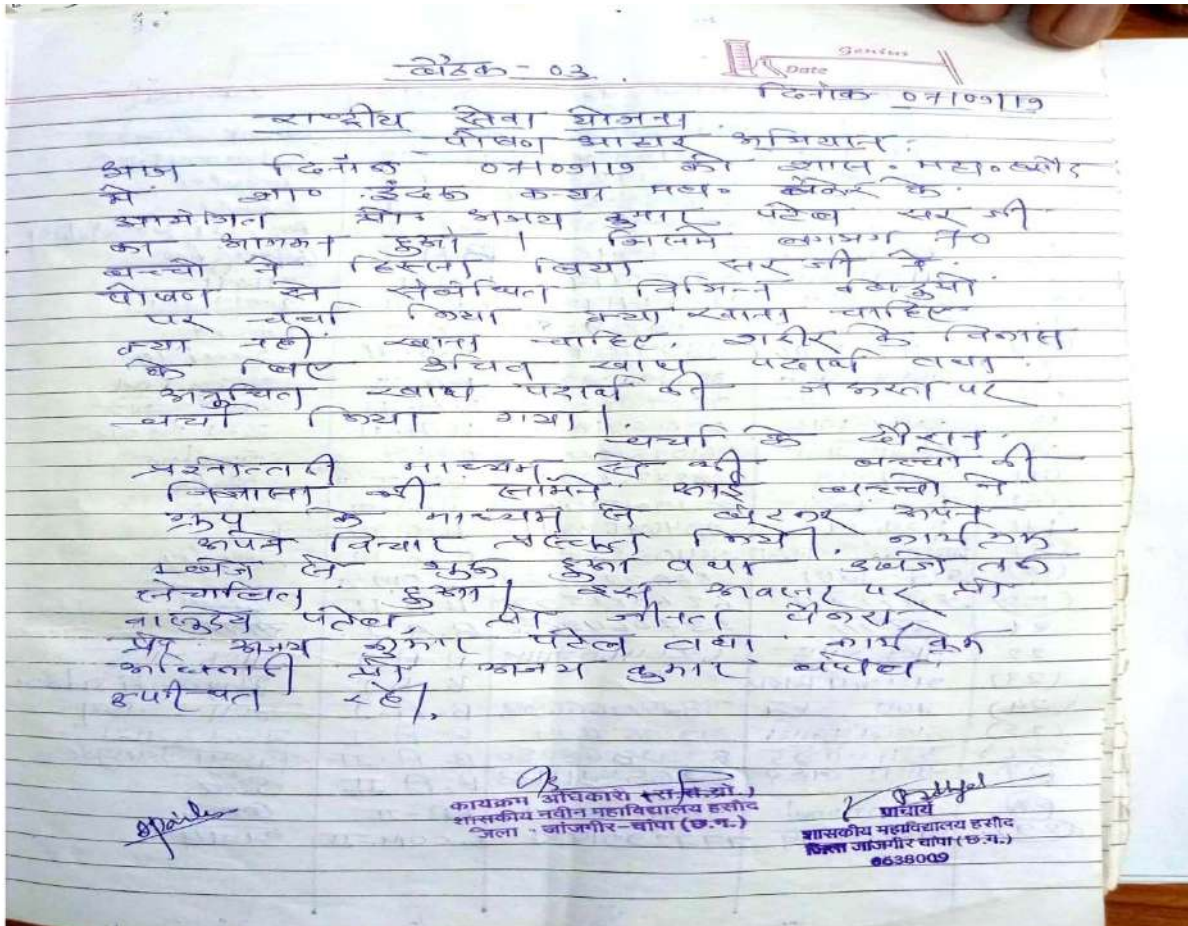 Genius
Date
बैठक - 03
दिनांक 07/09/19
राष्ट्रीय सेवा योजना
पोषण आहार अभियान
आज दिनांक 07/09/19 को शास. महा. हसौद
में शा० इंदरू कन्या महा० कांकेर के
प्रो. अजय कुमार पटेल सर जी
का आगमन हुआ। जिसमें लगभग 70
बच्चो ने हिस्सा लिया सर जी ने
पोषण से संबंधित विभिन्न बिन्दुओ
पर चर्चा किया क्या खाना चाहिए
क्या नहीं खाना चाहिए. शरीर के विकास
के लिए उचित खाद्य पदार्थ तथा
अनुचित खाद्य पदार्थ की जरूरत पर
चर्चा किया गया।
चर्चा के दौरान
प्रश्नोत्तरी माध्यम से की बच्चो की
जिज्ञासा की सामने आई बच्चो ने
ग्रुप के माध्यम से बैठकर अपने
अपने विचार प्रस्तुत किये. कार्यक्रम
से शुरू हुआ तथा 3 बजे तक
संचालित हुआ। इस अवसर पर प्रो
वासुदेव पटेल प्रो जीनत
प्रो. अजय कुमार पटेल तथा कार्यक्रम
अधिकारी प्रो अजय कुमार बघेल
उपस्थित रहे।
कार्यक्रम अधिकारी (रा.से.यो.)
शासकीय नवीन महाविद्यालय हसौद
जिला - जांजगीर-चांपा (छ.ग.)
प्राचार्य
शासकीय महाविद्यालय हसौद
जिला जांजगीर चांपा (छ.ग.)
6638009